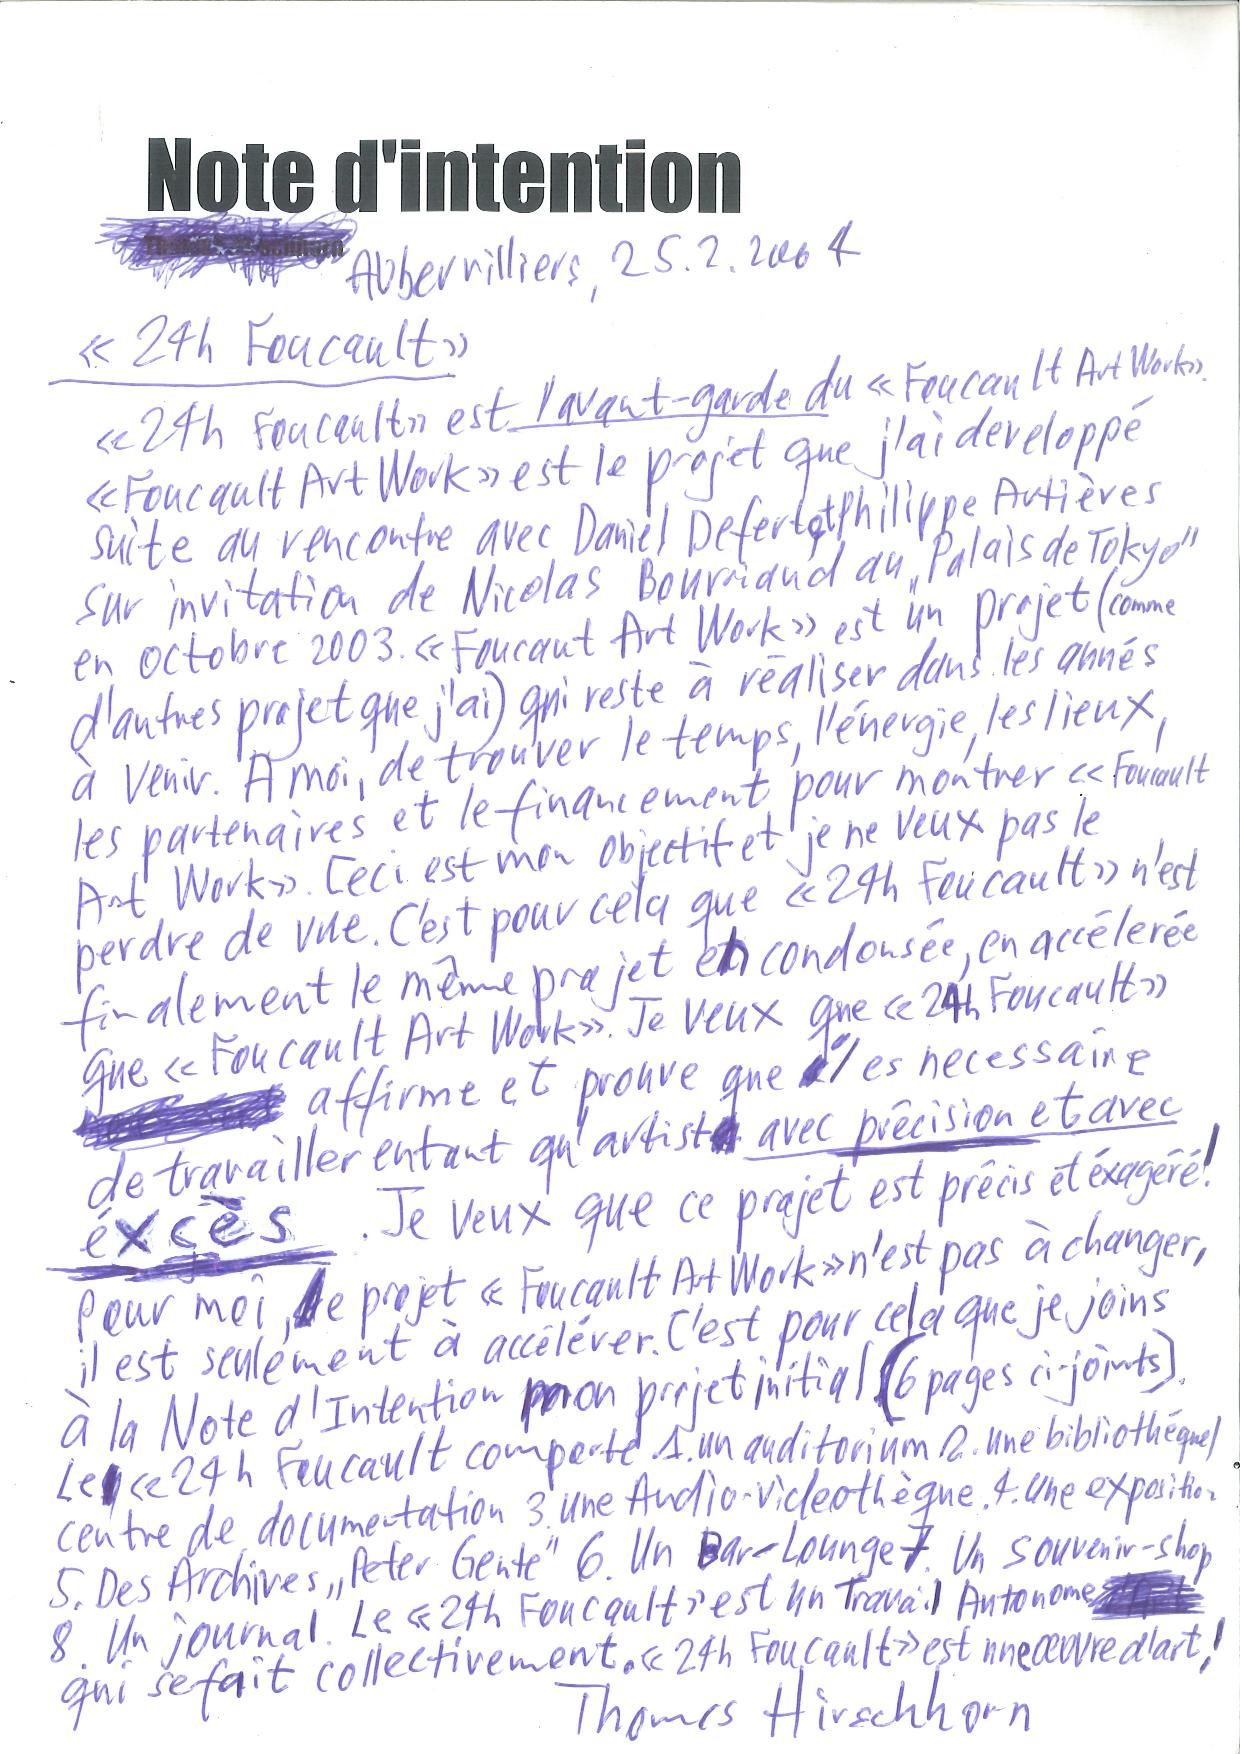 Note d'intention
Aubervilliers, 25.2.2004
« 24h Foucault »
«24h Foucault» est l'avant-garde du «Foucault Art Work».
«Foucault Art Work» est le projet que j'ai developpé
suite au rencontre avec Daniel Defert et Philippe Artières
sur invitation de Nicolas Bourriaud au „Palais de Tokyo"
en octobre 2003. «Foucaut Art Work» est un projet (comme
d'autres projet que j'ai) qui reste à réaliser dans les annés
à venir. A moi, de trouver le temps, l'énergie, les lieux,
les partenaires et le financement pour montrer «Foucault
Art Work». Ceci est mon objectif et je ne veux pas le
perdre de vue. C'est pour cela que «24h Foucault» n'est
finalement le même projet en condonsée, en accélerée
que «Foucault Art Work». Je veux que «24h Foucault»
affirme et prouve que il es necessaire
de travailler entant qu'artist avec précision et avec
éxcès. Je veux que ce projet est précis et éxagéré!
Pour moi, le projet «Foucault Art Work» n'est pas à changer,
il est seulement à accélérer. C'est pour cela que je joins
à la Note d'Intention mon projet initial (6 pages ci-joints).
Le «24h Foucault comporte 1. un auditorium 2. une bibliothéque/
centre de documentation 3. une Audio-Videothèque. 4. Une exposition
5. Des Archives „Peter Gente" 6. Un Bar-Lounge 7. Un Souvenir-shop
8. Un journal. Le «24h Foucault» est un Travail Autonome
qui se fait collectivement. «24h Foucault» est une œuvre d'art!
Thomas Hirschhorn